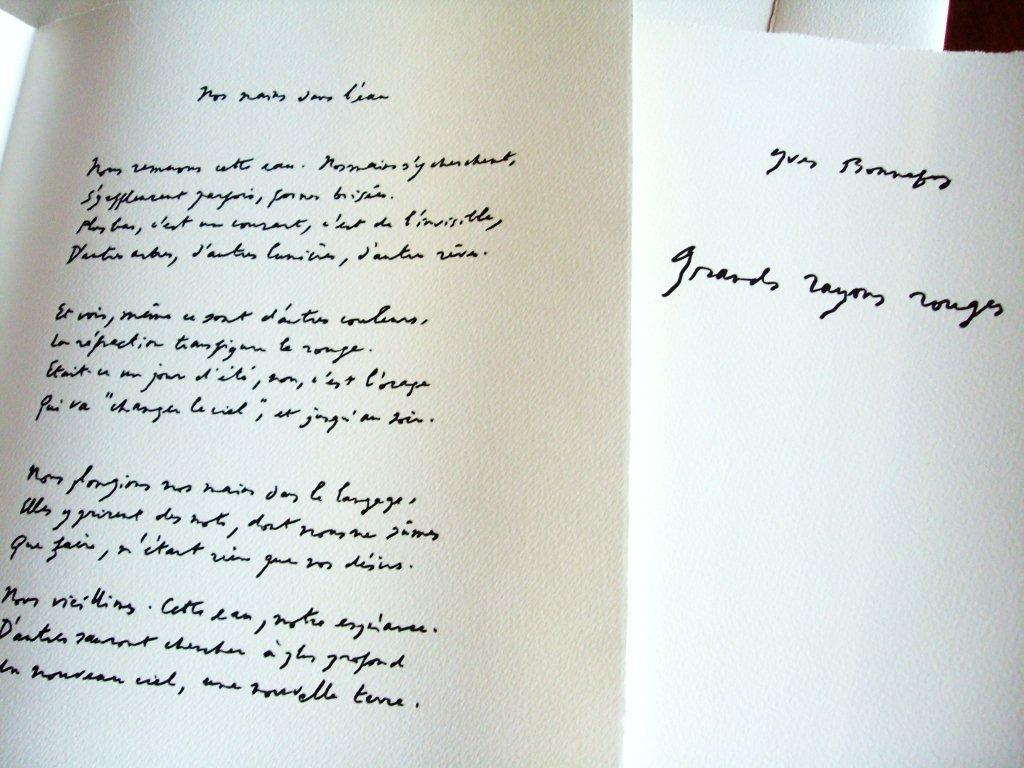 Nos mains dans l'eau
Nous remuons cette eau. Nos mains s'y cherchent,
S'y effleurent parfois, formes brisées.
Plus bas, c'est un courant, c'est de l'invisible,
D'autres arbres, d'autres lumières, d'autres rêves.
Et vois, même ce sont d'autres couleurs.
La réfraction transfigure le rouge.
Était-ce un jour d'été, non, c'est l'orage
Qui va "changer le ciel", et jusqu'au soir.
Nous plongions nos mains dans le langage,
Elles y prirent des mots, dont nous ne sûmes
Que faire, n'étant rien que nos désirs.
Nous vieillîmes. Cette eau, notre espérance.
D'autres sauront chercher à plus profond
Un nouveau ciel, une nouvelle terre.
Yves Bonnefoy
Grands rayons rouges